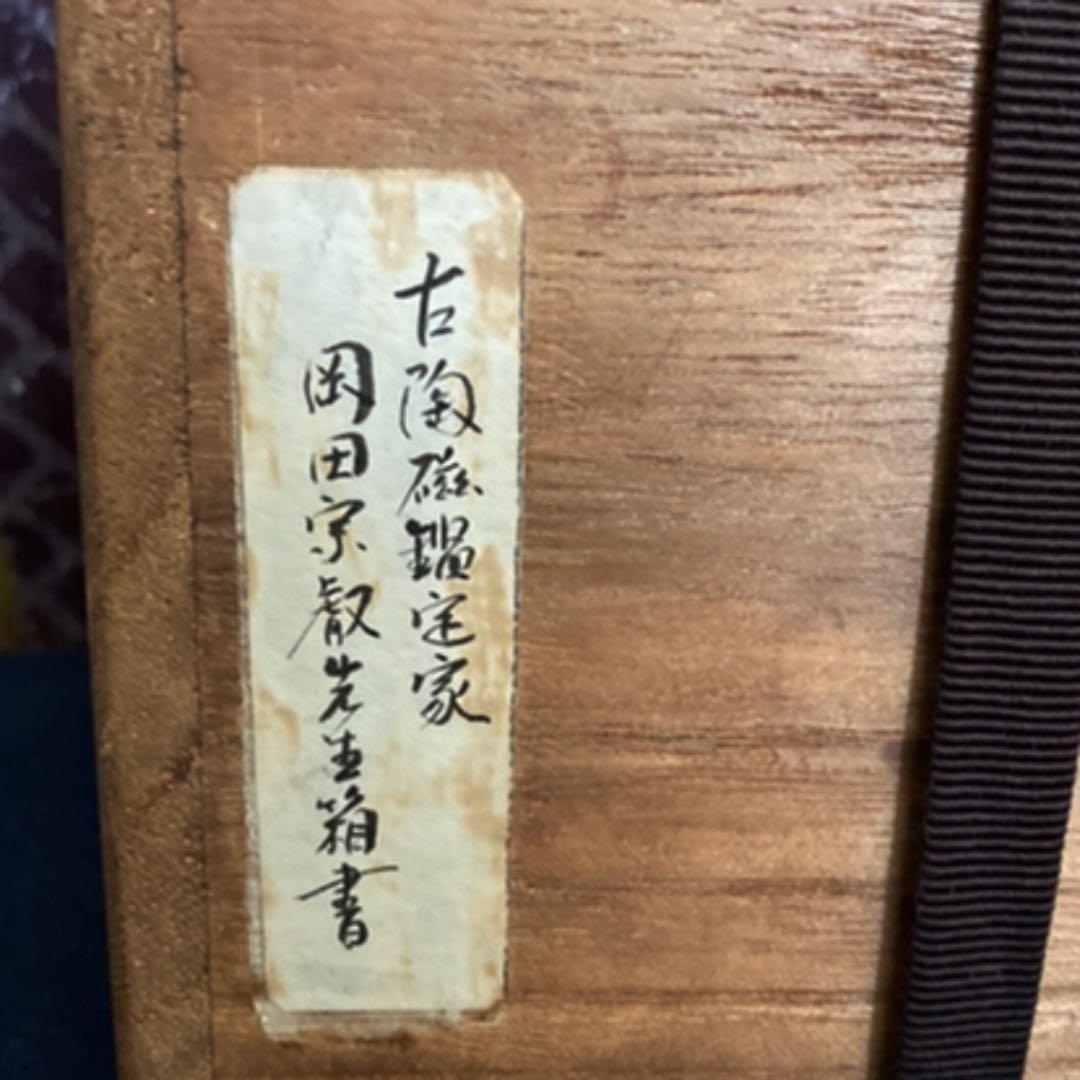 古陶磁鑑定家
岡田宗叡先生箱書